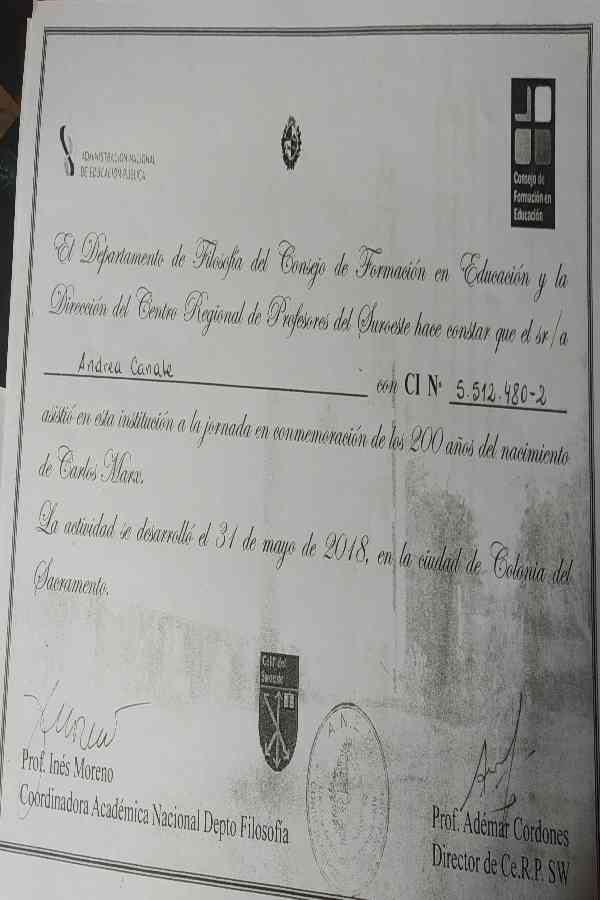 ADMINISTRACIÓN NACIONAL
DE EDUCACIÓN PÚBLICA
Consejo de
Formación en
Educación
El Departamento de Filosofía del Consejo de Formación en Educación y la
Dirección del Centro Regional de Profesores del Suroeste hace constar que el sr/a
Andrea Canale
con CI Nº 5.512.480-2
asistió en esta institución a la jornada en conmemoración de los 200 años del nacimiento
de Carlos Marx.
La actividad se desarrolló el 31 de mayo de 2018, en la ciudad de Colonia del
Sacramento.
Prof. Inés Moreno
Coordinadora Académica Nacional Depto Filosofía
Prof. Adémar Cordones
Director de Ce.R.P. SW